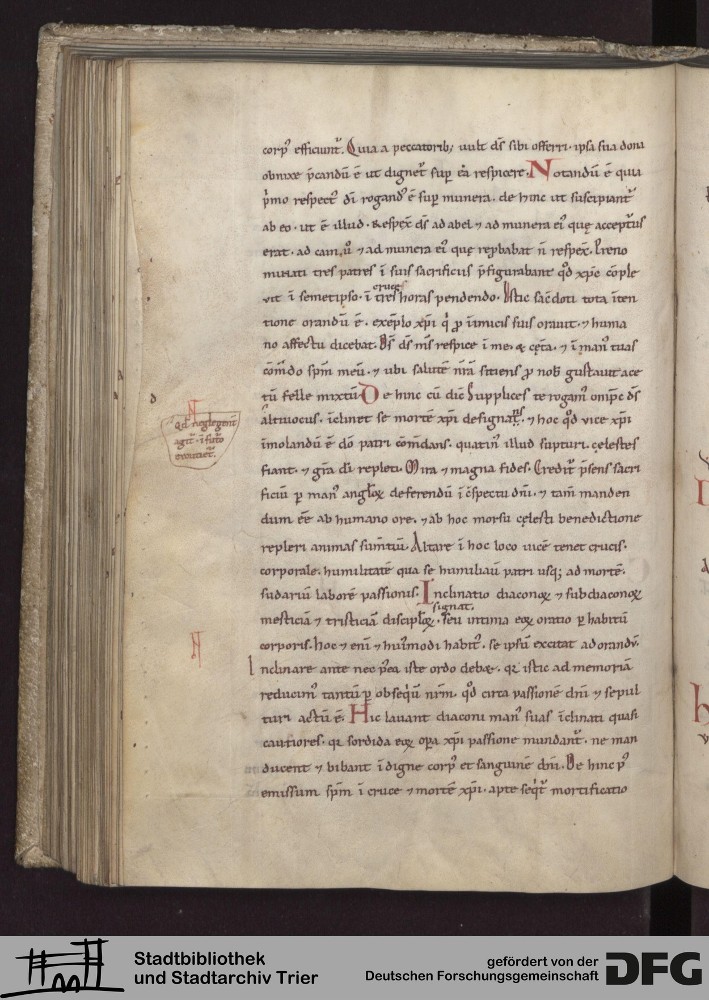 corp᾿ efficiunt᾿. Quia a peccatorib; uult ds̄ sibi offerri. ipsa sua dona
obnixe p̄candū ē ut dignet᾿ sup ea respicere. Notandū ē quia
p̄mo respect᾿ dī rogand᾿ ē sup munera. de hinc ut suscipiant᾿
ab eo. ut ē illud. & respex̄ ds̄ ad abel ⁊ ad munera ei᾿ quę accept᾿us
erat. ad cain ū ⁊ ad munera ei᾿ quę rep̄babat n̄ respex̄. Prenominati
tres patres ī suis sacrificiis p̄figurabant qd̄ xp̄c cōple
uit ī semetipso. ī cruce tres horas pendendo. Istic sacdoti tota ītentione
orandū ē. exēplo xp̄i q̇ ꝓ inimicis suis orauit. ⁊ humano
affectu dicebat. Ds̄ ds̄ m̄s respice ī me. & cęt̄a. ⁊ ī man᾿ tuas
cōm̄do sp̄m meū. ⁊ ubi salutē nr̄a sitiens ꝓ nob᾿ gustauit acetū
felle mixtū. De hinc cū dic̄ Supplices te rogam᾿ omīpc̄ ds̄
altiuocus. īclinet se mortē xp̄i designās. ⁊ hoc qd̄ vice xp̄i
īmolandū ē dō patri cōm̄dans. quatin᾿ illud supturi. cęlestes
fiant. ⁊ gr̄a dī repleti. Mira ⁊ magna fides. Credit᾿ p̄sens sacrificiū
ꝑ man᾿ anglo℞ deferendū ī c̄spectu dn̄i. ⁊ tam̄ manden
dum eē ab humano ore. ⁊ ab hoc morsu cęlesti benedictione
repleri animas sumtiū. Altare ī hoc loco uicē tenet crucis.
corporale. humilitatē qua se humiliauit patri usq; ad mortē.
sudariū laborē passionis. Inclinatio diacono℞ ⁊ subdiacono℞
mesticiā ⁊ tristiciā disciplo℞ signat. seu intima eo℞ oratio ꝑ habitū
corporis. hoc ⁊ eni ⁊ hui᾿modi habit᾿. se ipsū excitat ad orandū.
Inclinare ante nec p᾿ea iste ordo debet. qr istic ad memoriā
reducim᾿ tantū ꝑ obseq̇ū nrm̄. qd̄ circa passionē dn̄i ⁊ sepulturi
actū ē. Hic lauant diaconi man᾿ suas īclinati quasi
cautiores. qr sordida eo℞ opa xp̄i passione mundant᾿. ne man
ducent ⁊ bibant īdigne corp᾿ et sanguinē dn̄i. De hinc p᾿
emissum sp̄m ī cruce ⁊ mortē xp̄i. apte seq̇t᾿ mortificatio
qd neglegent᾿
agit᾿. ī futo
Stadtbibliothek
und Stadtarchiv Trier
gefördert von der
Deutschen Forschungsgemeinschaft
DFG